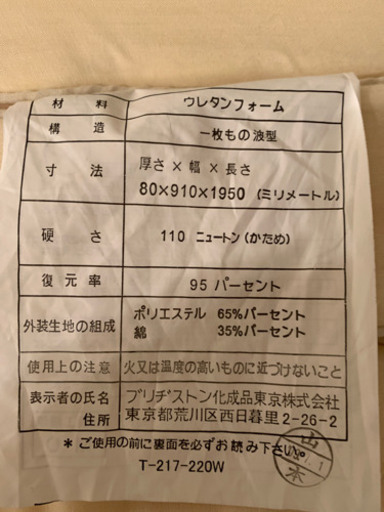 材 料 ウレタンフォーム
構 造 一枚もの波型
寸 法 厚さ × 幅 × 長さ
80×910×1950 (ミリメートル)
硬 さ 110 ニュートン(かため)
復 元 率 95 パーセント
外装生地の組成 ポリエステル 65%パーセント
綿 35%パーセント
使用上の注意 火又は温度の高いものに近づけないこと
表示者の氏名 ブリヂストン化成品東京株式会社
住所 東京都荒川区西日暮里2-26-2
* ご使用の前に裏面を必ずお読み下さい。
T-217-220W
山
本